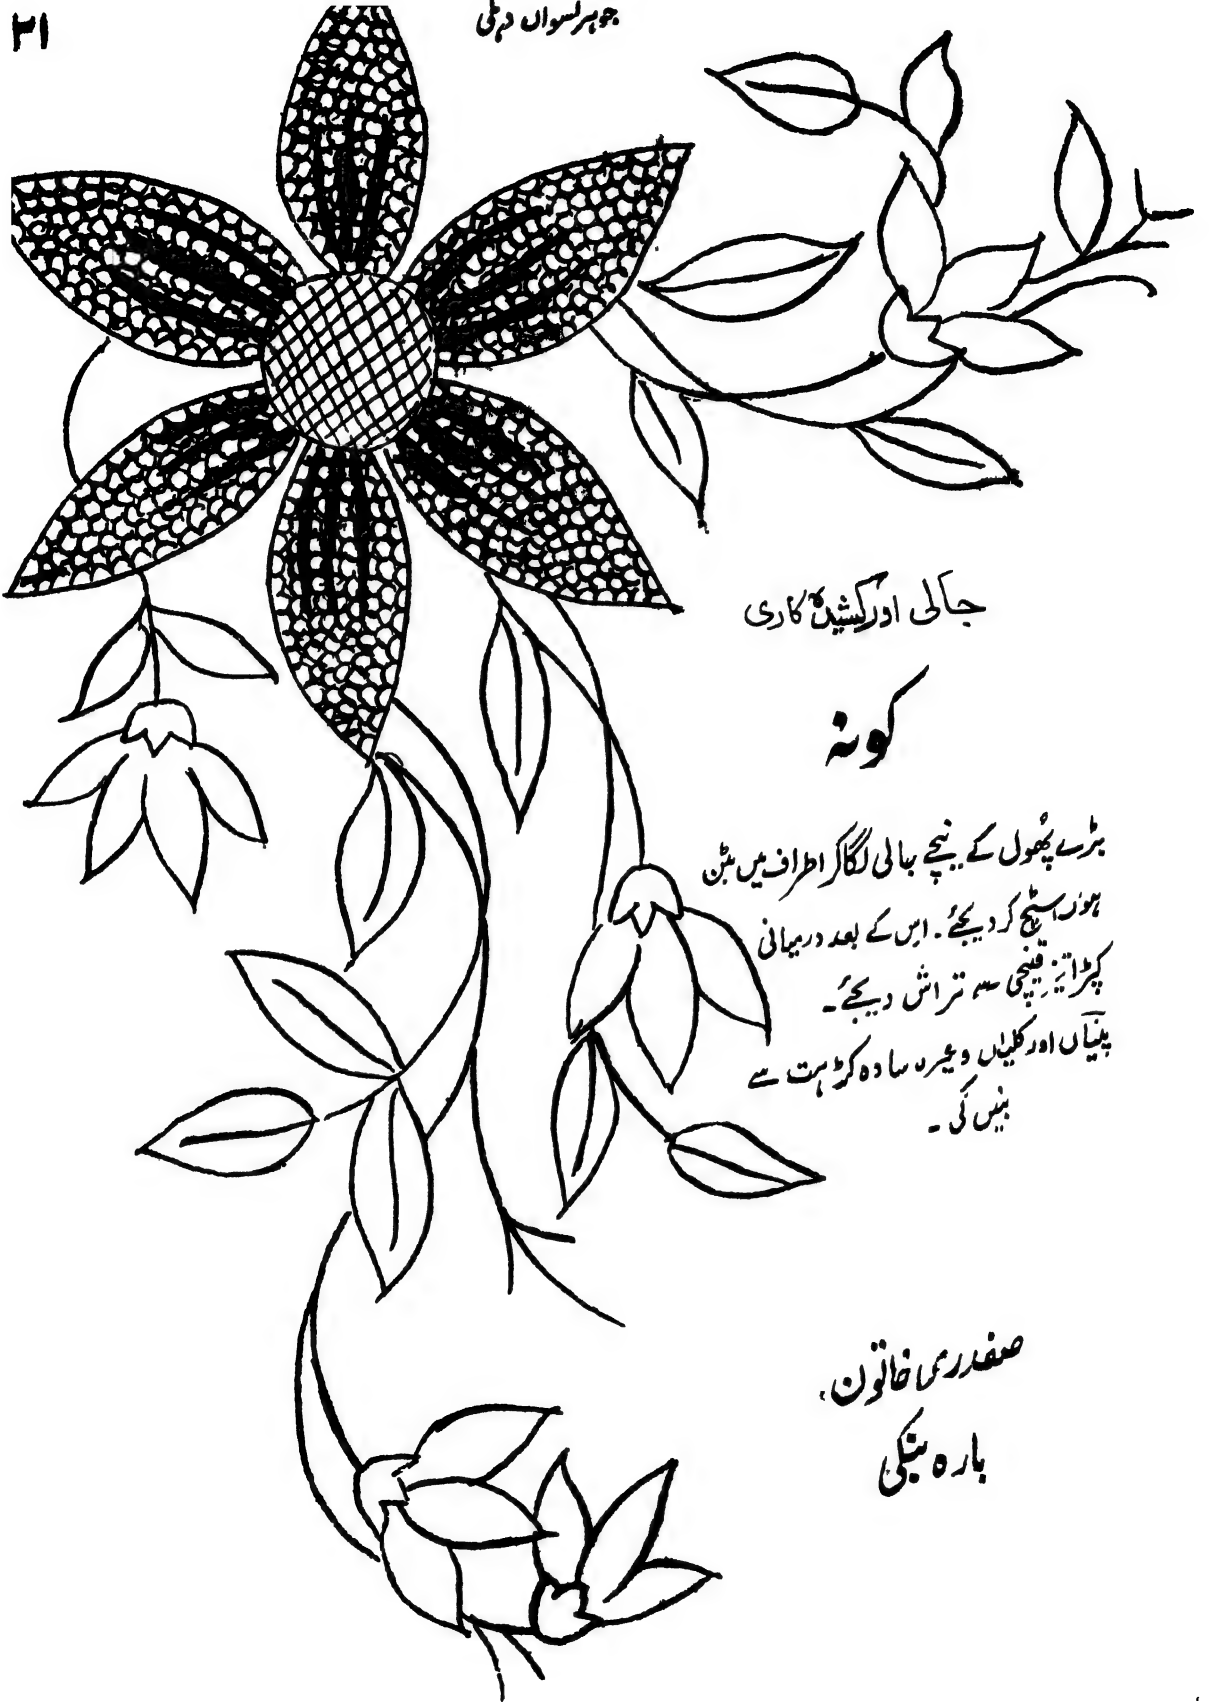 ۳۱
جوہر نسواں دہلی
جالی اور کشیدہ کاری
کونہ
بڑے پھول کے نیچے جالی لگا کر اطراف میں بٹن
ہول اسٹیچ کر دیجئے۔ اس کے بعد درمیانی
کپڑا تیز قینچی سے تراش دیجئے۔
پتیاں اور کلیاں وغیرہ سادہ کڑہت سے
بنیں گی۔
صفدری خاتون،
بارہ بنکی